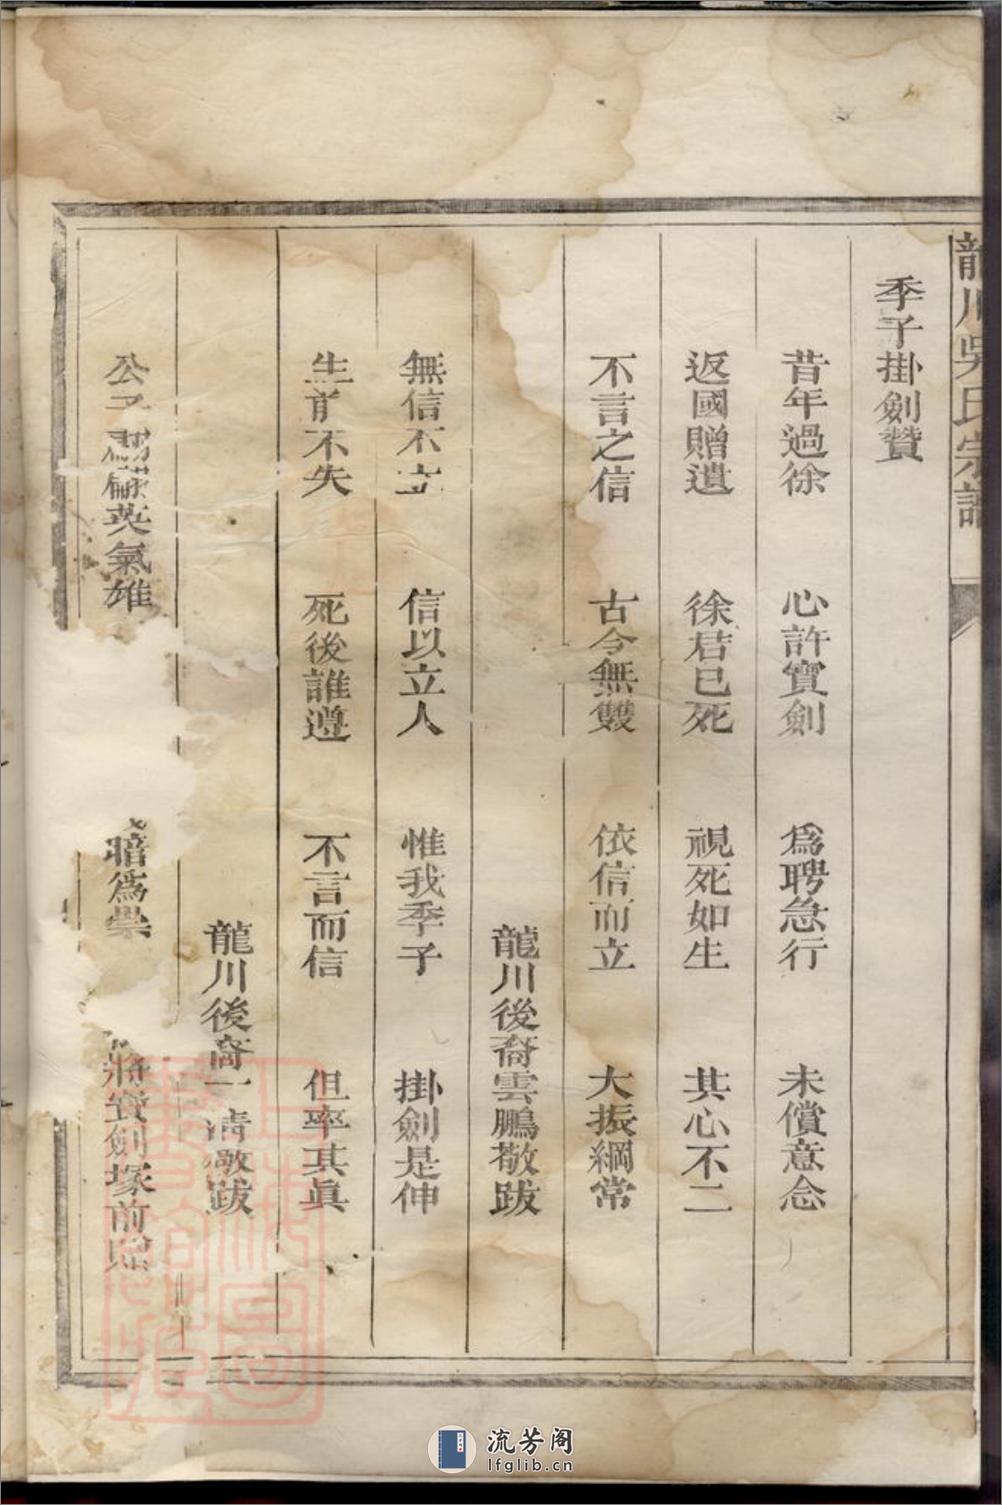 龍川吳氏宗譜
季子掛劍贊
昔年過徐 心許寶劍 爲聘急行 未償意念
返國贈遺 徐君已死 視死如生 其心不二
不言之信 古今無雙 依信而立 大振綱常
龍川後裔雲鵬敬跋
無信不立 信以立人 惟我季子 掛劍是伸
生前不失 死後誰遵 不言而信 但率其眞
龍川後裔一清敬跋
公子翩翩英氣雄 暗爲崇 將寶劍塚前
流芳阁
lfglib.cn